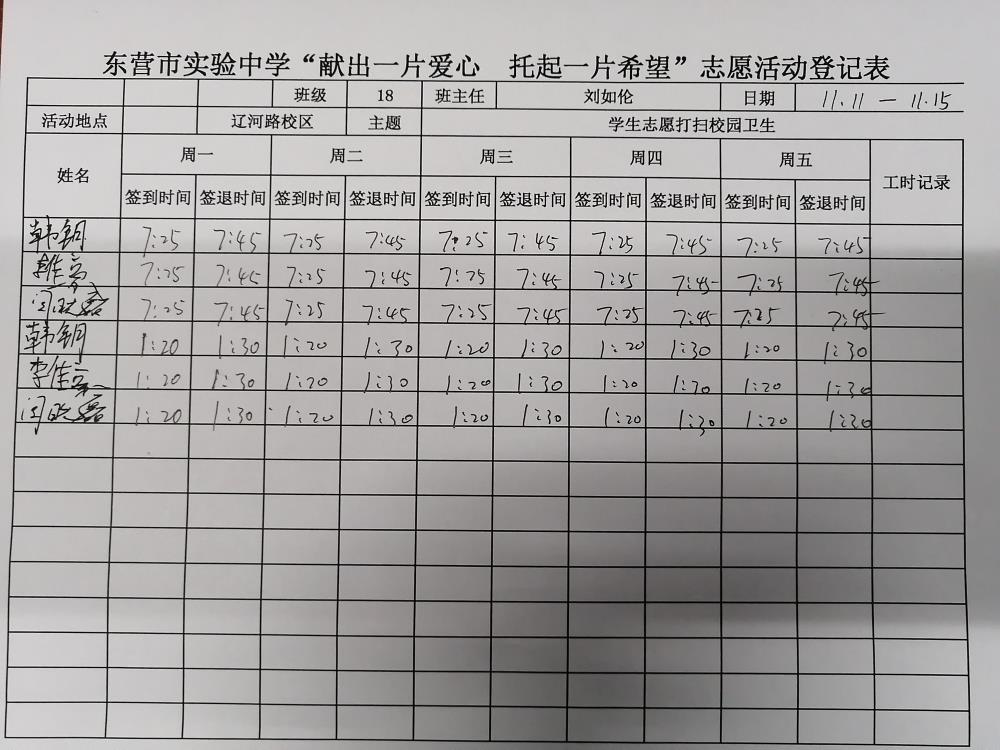 东营市实验中学“献出一片爱心 托起一片希望”志愿活动登记表
班级 18 班主任 刘如伦 日期 11.11 — 11.15
活动地点 辽河路校区 主题 学生志愿打扫校园卫生
姓名 周一 周二 周三 周四 周五 工时记录
签到时间 签退时间 签到时间 签退时间 签到时间 签退时间 签到时间 签退时间 签到时间 签退时间
韩钥 7:25 7:45 7:25 7:45 7:25 7:45 7:25 7:45 7:25 7:45
7:25 7:45 7:25 7:45 7:25 7:45 7:25 7:45 7:25 7:45
7:25 7:45 7:25 7:45 7:25 7:45 7:25 7:45 7:25 7:45
韩钥 1:20 1:30 1:20 1:30 1:20 1:30 1:20 1:30 1:20 1:30
1:20 1:30 1:20 1:30 1:20 1:30 1:20 1:30 1:20 1:30
1:20 1:30 1:20 1:30 1:20 1:30 1:20 1:30 1:20 1:30